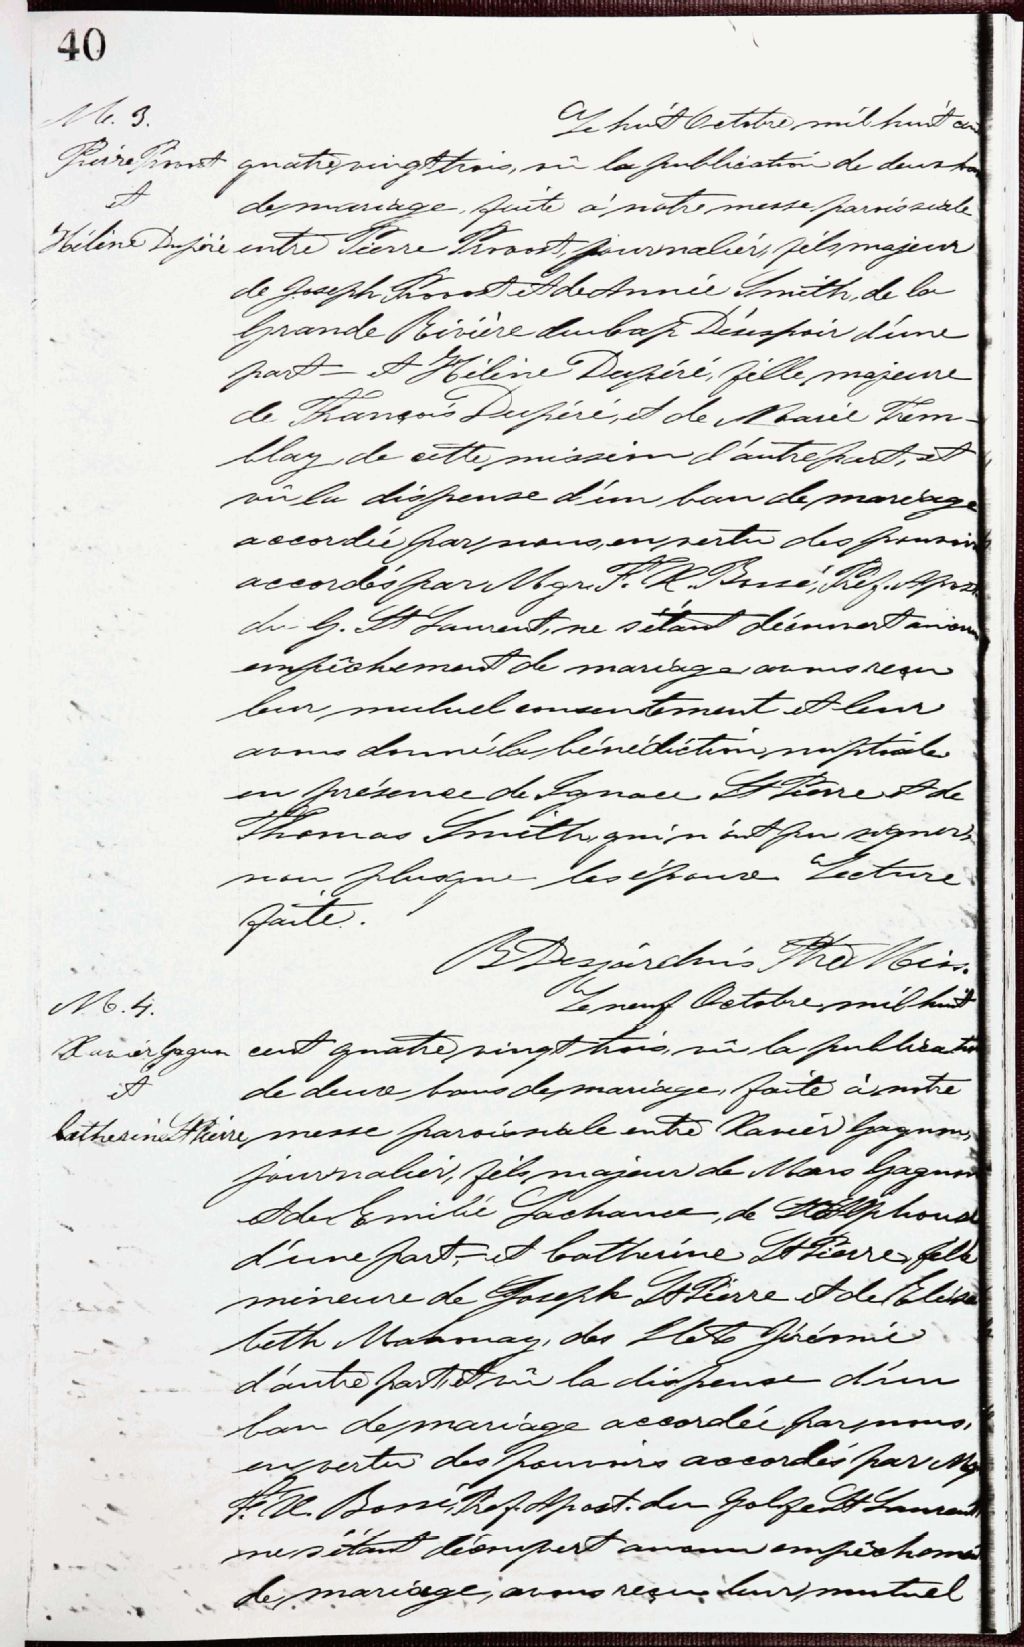 40
M. 3.
Le huit Octobre mil huit cent
Pierre Provost quatre vingt trois, vû la publication de deux bans
et
de mariage, faite à notre messe paroissiale
Hélène Dupéré entre Pierre Provost, journalier, fils majeur
de Joseph Provost et de Annie Smith, de la
Grande Rivière du Cap Désespoir d'une
part — et Hélène Dupéré, fille majeure
de François Dupéré, et de Marie Trem-
blay de cette mission d'autre part, et
vû la dispense d'un ban de mariage
accordée par nous, en vertu des pouvoirs
accordés par Mgr. F. X. Bossé, Préf. Apost.
du G. St Laurent, ne s'étant découvert aucun
empêchement de mariage avons reçu
leur mutuel consentement et leur
avons donné la bénédiction nuptiale
en présence de Ignace St Pierre et de
Thomas Smith, qui n'ont pu signer,
non plus que les époux. Lecture
faite.
B Desjardins Ptre Miss.
M. 4.
Le neuf Octobre mil huit
Xavier Gagnon cent quatre vingt trois, vû la publication
et
de deux bans de mariage, faite à notre
Catherine St Pierre, messe paroissiale entre Xavier Gagnon,
journalier, fils majeur de Mars Gagnon
et de Emilie Lachance, de St Alphonse
d'une part, — et Catherine St Pierre, fille
mineure de Joseph St Pierre et de Elisa
beth Mahonay, des Ilets Jérémie
d'autre part, et vû la dispense d'un
ban de mariage accordée par nous,
en vertu des pouvoirs accordés par Mgr
F. X. Bossé, Préf. Apost. du Golfe St Laurent
ne s'étant découvert aucun empêchement
de mariage, avons reçu leur mutuel